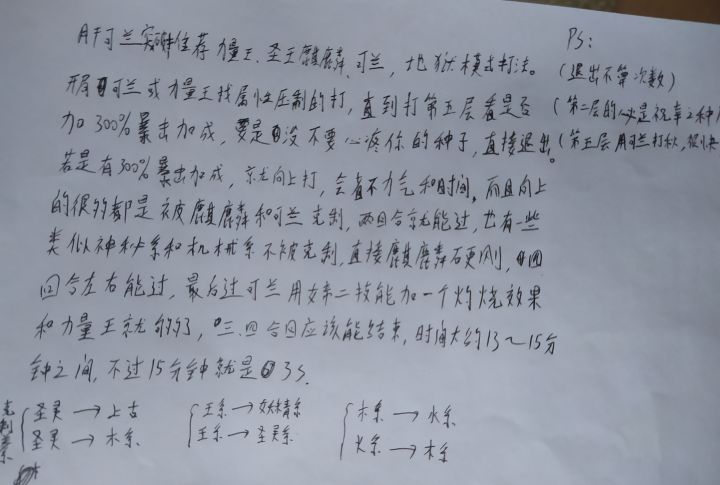 用于可兰 推荐力量王、圣王麒麟、可兰,地狱模式打法。
PS:
(退出不算次数)
开局可兰或力量王找属性压制的打,直到打第五层看是否
(第二层的必是祝幸之种
加300%暴击加成,要是没不要心疼你的种子,直接退出。
(第五层用可兰打秋,很快
若是有300%暴击加成,就向上打,会省不力气和时间。而且向上
的很多都是被麒麟和可兰克制,两回合就能过,也有一些
类似神秘系和机械系不被克制,直接麒麟石更刚,四
回合左右能过,最后过可兰用 二技能加一个灼烧效果
和力量王就够了,三四回合应该能结束,时间大约13~15分
钟之间,不过15分钟就是3S.
克制关系
圣灵→上古
圣灵→木系
王系→妖精系
王系→圣灵系
木系→水系
火系→木系